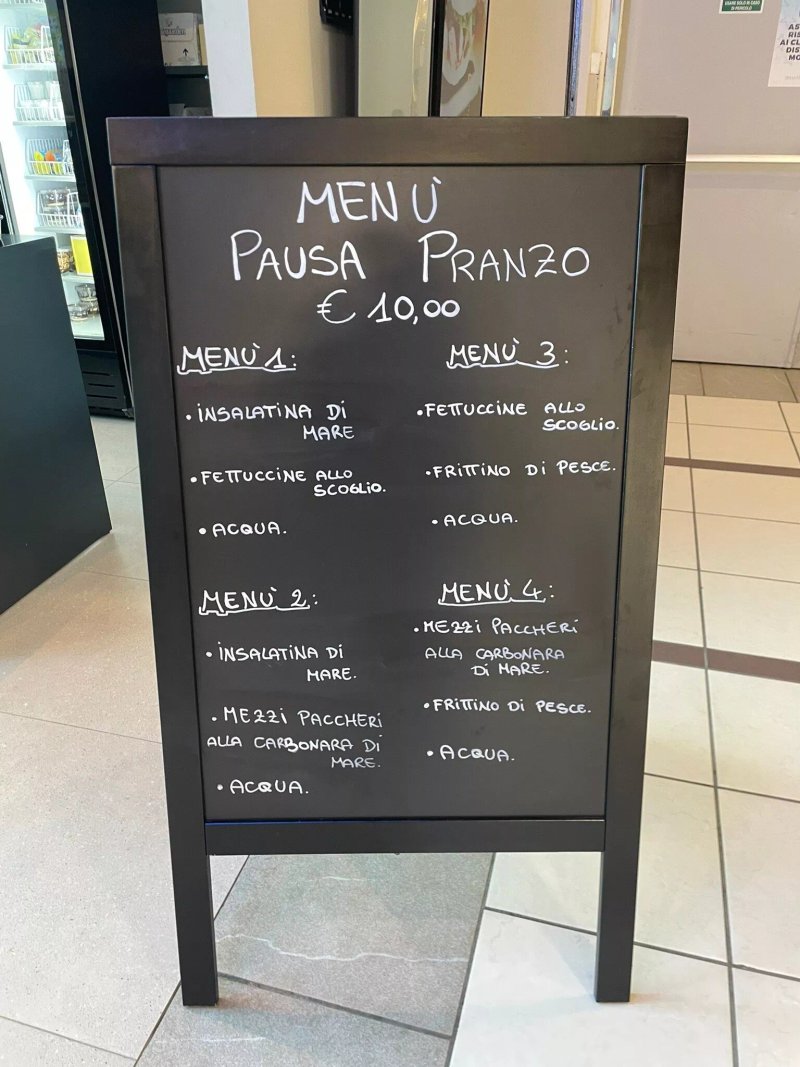 MENÙ
PAUSA PRANZO
€ 10,00
MENÙ 1:
• INSALATINA DI
MARE
• FETTUCCINE ALLO
SCOGLIO.
• ACQUA.
MENÙ 2:
• INSALATINA DI
MARE.
• MEZZI PACCHERI
ALLA CARBONARA DI
MARE.
• ACQUA.
MENÙ 3:
• FETTUCCINE ALLO
SCOGLIO.
• FRITTINO DI PESCE.
• ACQUA.
MENÙ 4:
• MEZZI PACCHERI
ALLA CARBONARA
DI MARE.
• FRITTINO DI PESCE.
• ACQUA.
USARE SOLO IN CASO
DI PERICOLO